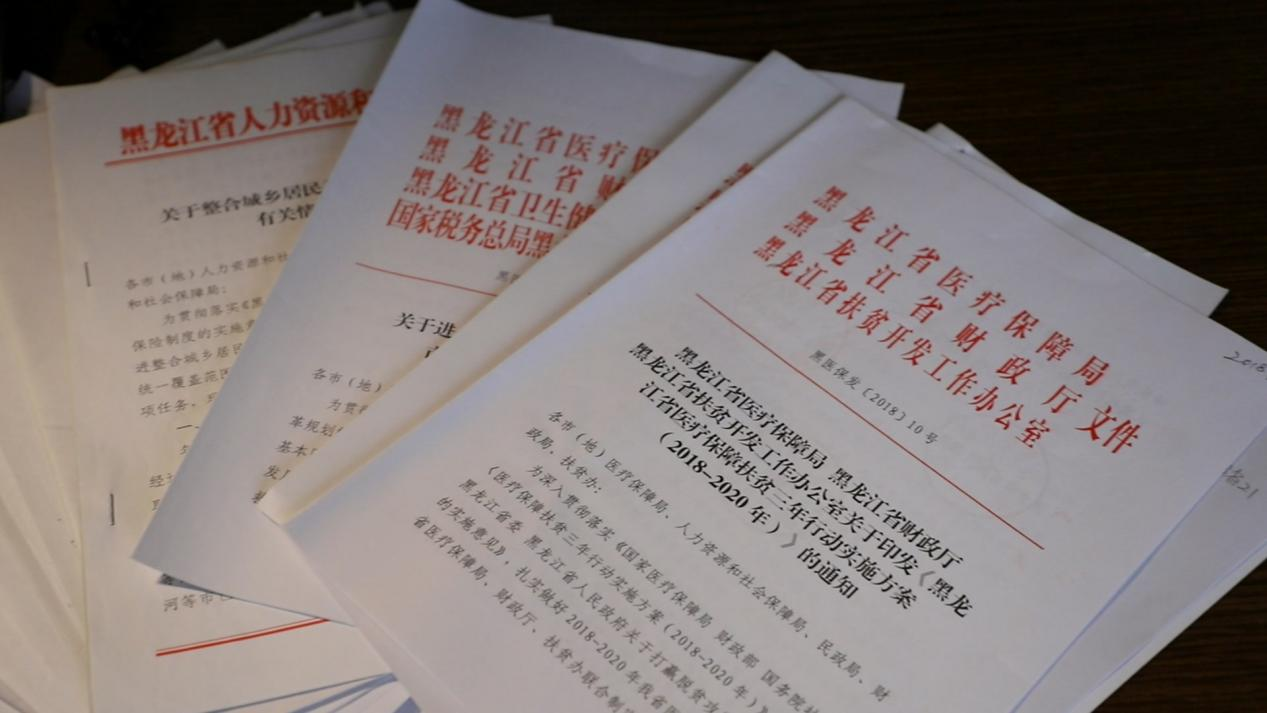 黑龙江省人力资源和
关于整合城乡居民
有关情
各市（地）人力资源和社
和社会保障局：
为贯彻落实《黑
保险制度的实施
进整合城乡居民
统一覆盖范围
项任务、
一
经
河等市
黑龙江省医疗保
黑龙江省财
黑龙江省卫生健
国家税务总局黑
黑
关于进
各市（地）
为贯
革规划
基本
发
黑龙江省医疗保障局
黑龙江省财政厅文件
黑龙江省扶贫开发工作办公室
黑医保发〔2018〕10号
黑龙江省医疗保障局 黑龙江省财政厅
黑龙江省扶贫开发工作办公室关于印发《黑龙
江省医疗保障扶贫三年行动实施方案
（2018-2020年）》的通知
各市（地）医疗保障局、人力资源和社会保障局、民政局、财
政局、扶贫办：
为深入贯彻落实《国家医疗保障局 财政部 国务院扶
《医疗保障扶贫三年行动实施方案（2018-2020年）》
黑龙江省委 黑龙江省人民政府关于打赢脱贫攻
的实施意见》，扎实做好2018-2020年我省医
省医疗保障局、财政厅、扶贫办联合制
2018
21